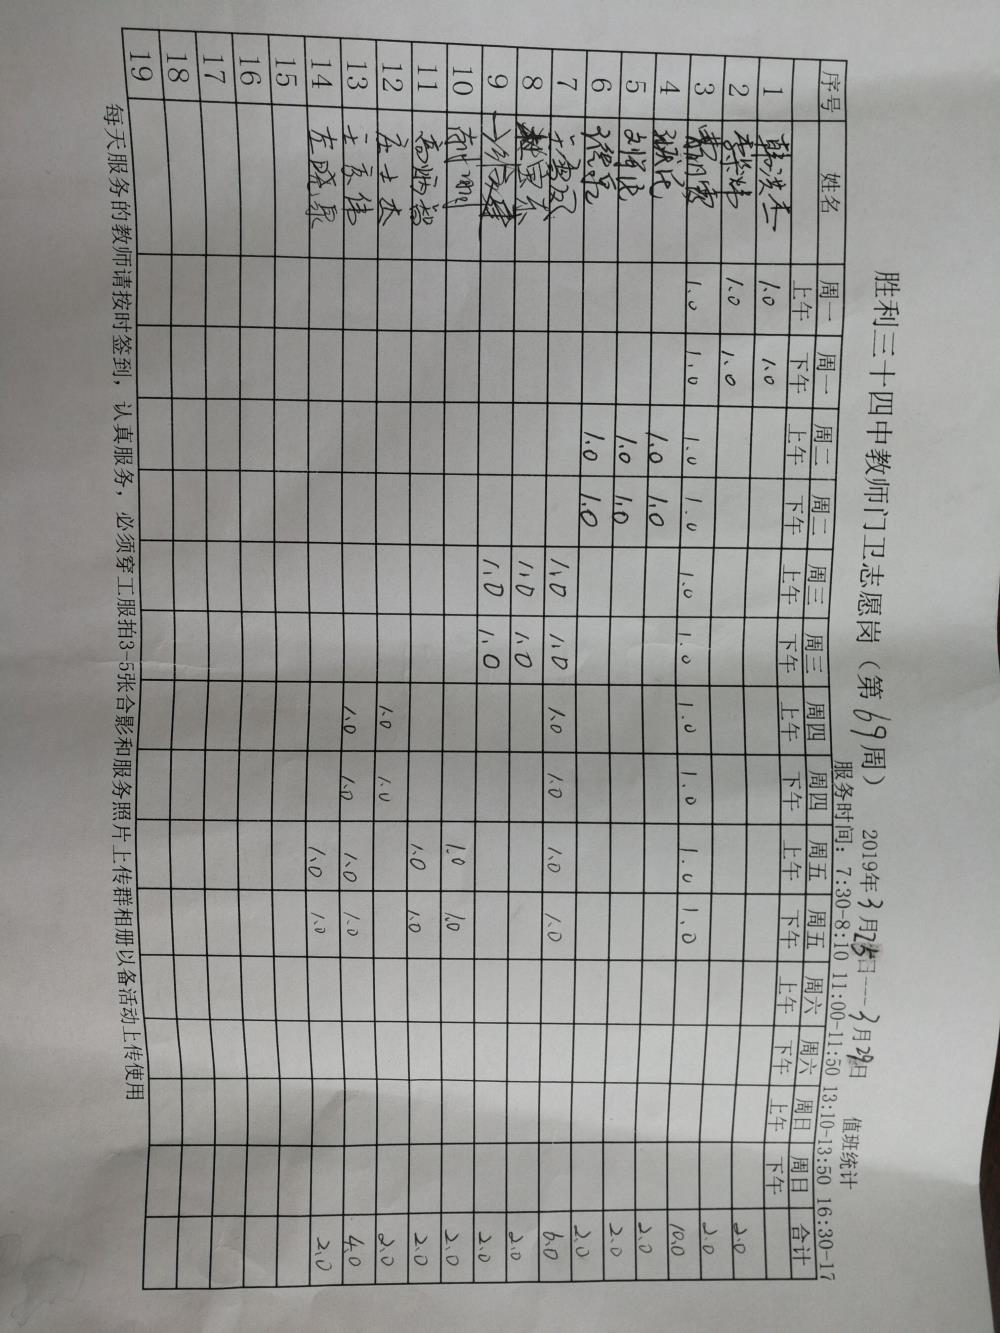 胜利三十四中教师门卫志愿岗（第69周） 2019年3月25日---3月29日 值班统计
服务时间：7:30-8:10 11:00-11:50 13:10-13:50 16:30-17
序号 姓名 周一上午 周一下午 周二上午 周二下午 周三上午 周三下午 周四上午 周四下午 周五上午 周五下午 周六上午 周六下午 周日上午 周日下午 合计
1 1.0 1.0 2.0
2 1.0 1.0 2.0
3 1.0 1.0 1.0 1.0 1.0 1.0 1.0 1.0 1.0 1.0 10.0
4 1.0 1.0 2.0
5 1.0 1.0 2.0
6 1.0 1.0 2.0
7 1.0 1.0 1.0 1.0 1.0 1.0 6.0
8 1.0 1.0 2.0
9 1.0 1.0 2.0
10 1.0 1.0 2.0
11 高炳智 1.0 1.0 2.0
12 1.0 1.0 2.0
13 王京伟 1.0 1.0 1.0 1.0 4.0
14 左晓泉 1.0 1.0 2.0
15
16
17
18
19
每天服务的教师请按时签到，认真服务，必须穿工服拍3-5张合影和服务照片上传群相册以备活动上传使用